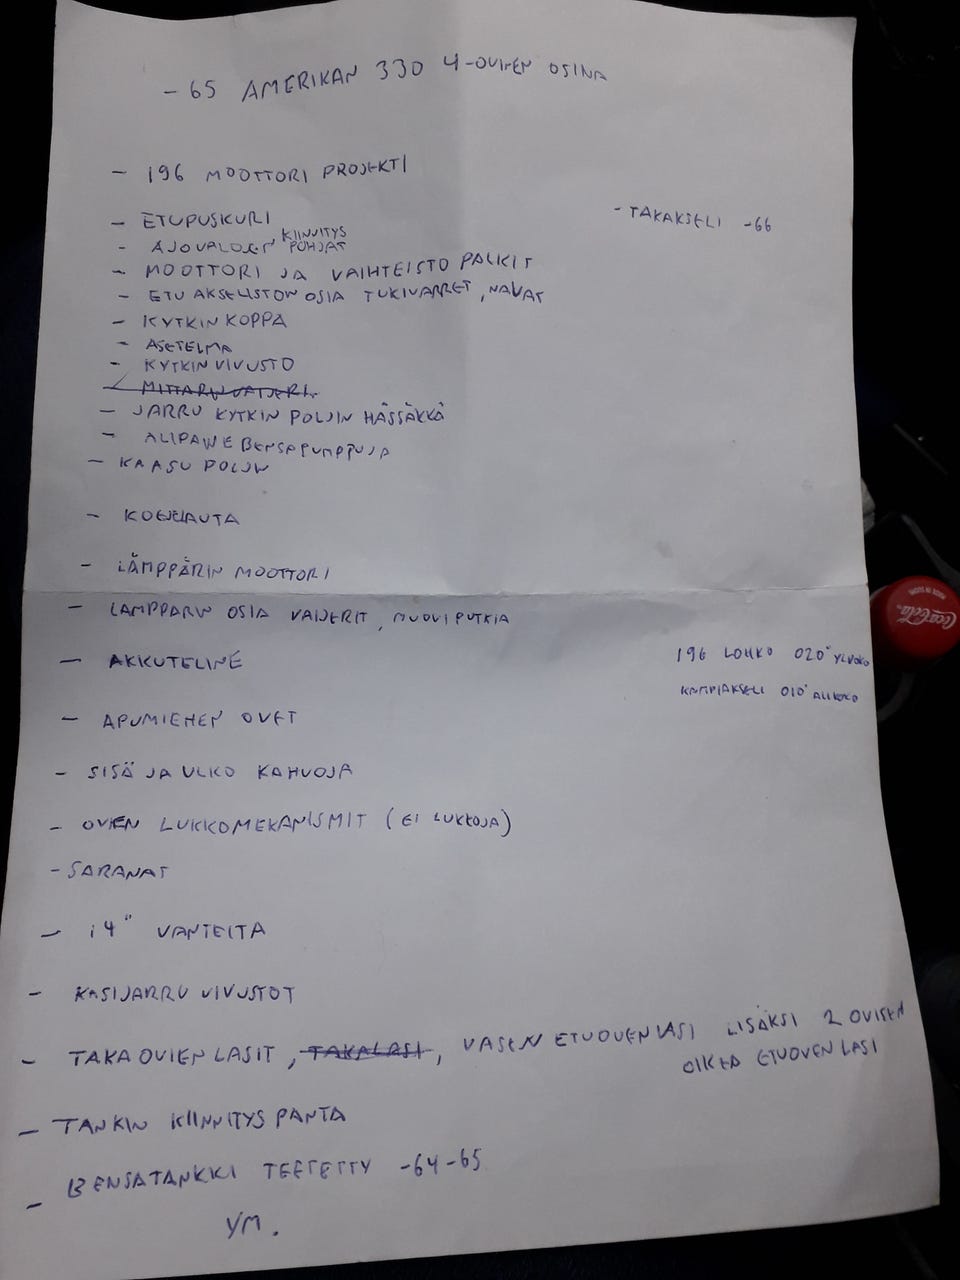 - 65 AMERIKAN 330 4-OVINEN OSINA
- 196 MOOTTORI PROJEKTI
- ETUPUSKURI
- TAKAKSELI -66
- AJOVALOJEN KIINNITYS POHJAT
- MOOTTORI JA VAIHTEISTO PALKIT
- ETU AKSELISTON OSIA TUKIVARRET, NAVAT
- KYTKIN KOPPA
- ASETELMA
- KYTKIN VIVUSTO
- MITTARIN VAIJERI
- JARRU KYTKIN POLJIN HÄSSÄKKÄ
- ALIPAINE BENSAPUMPPUJA
- KAASU POLJIN
- KOJELAUTA
- LÄMPPÄRIN MOOTTORI
- LÄMPPÄRIN OSIA VAIJERIT, MUOVIPUTKIA
- AKKUTELINE
196 LOHKO 020" YLIKOKO
KAMPIAKSELI 010" ALIKOKO
- APUMIEHEN OVET
- SISÄ JA ULKO KAHVOJA
- OVIEN LUKKOMEKANISMIT (EI LUKKOJA)
- SARANAT
- 14" VANTEITA
- KÄSIJARRU VIVUSTOT
- TAKAOVIEN LASIT, TAKALASI, VASEN ETUOVEN LASI LISÄKSI 2 OVISEN
OIKEA ETUOVEN LASI
- TANKIN KIINNITYS PANTA
- BENSATANKKI TEETETTY -64-65
YM.
Coca-Cola
MADE IN SUOMI